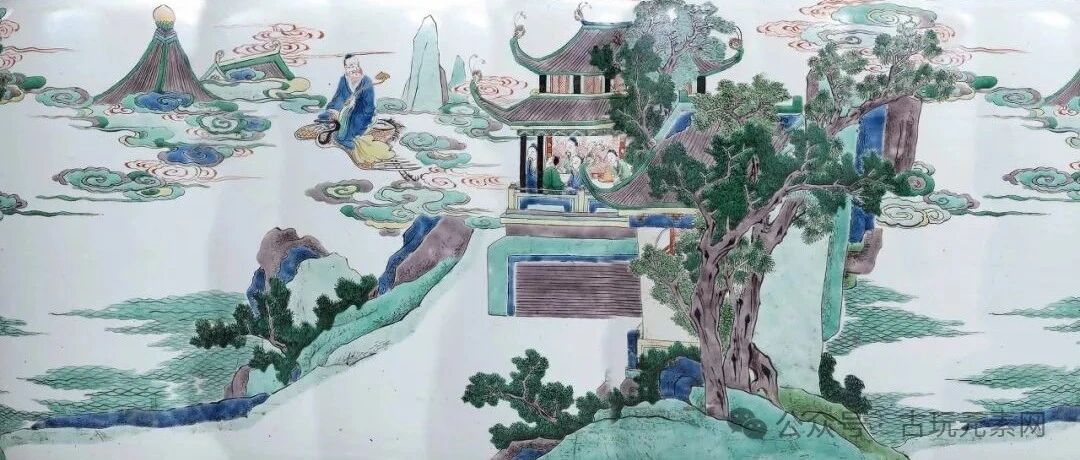 公众号·古玩元素网